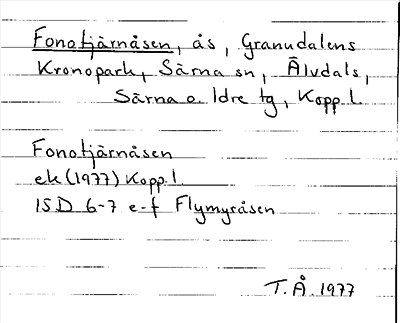 Fonotjärnåsen, ås, Granudalens
Kronopark, Särna sn, Älvdals,
Särna o. Idre tg, Kopp. l.
Fonotjärnåsen
ek (1977) Kopp. l.
15D 6-7 e-f Flymyråsen
T. Å. 1977